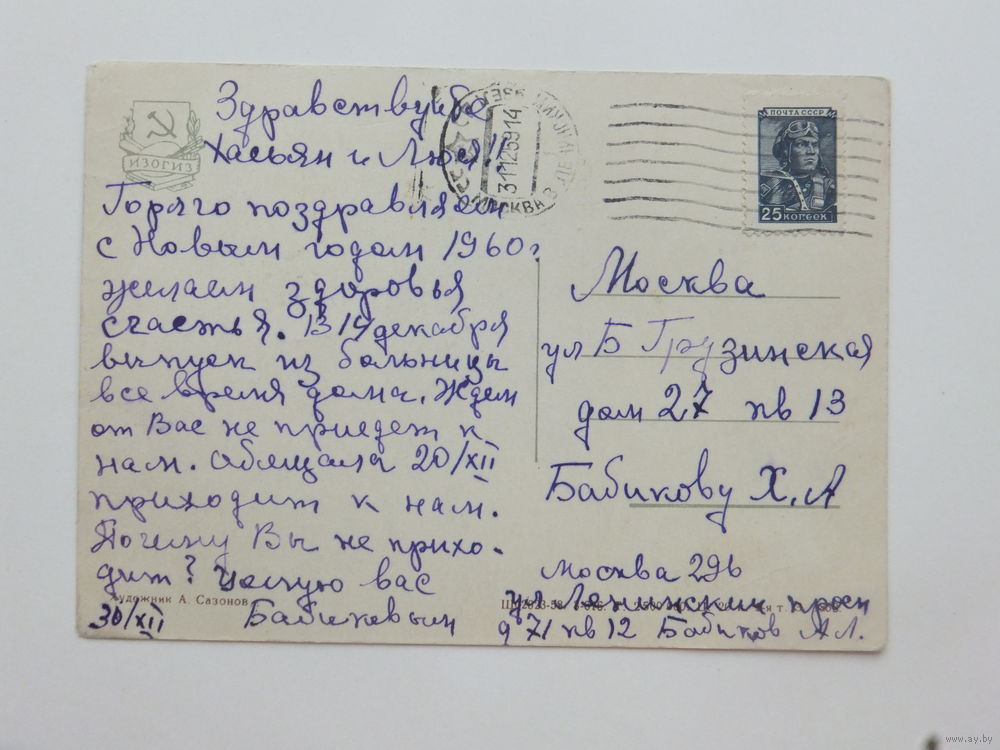 Здравствуйте
Хасьян и Люся!!
Горяго поздравляем
с Новым годом 1960г
желаем здоровья
счастья. В 19 декабря
выпуск из больницы
все время дома. Ждем
от Вас не приедет к
нам. Обещала 20/XII
приходит к нам.
Почему Вы не прихо-
дит? Целую вас
30/XII Бабиковым
Художник А. Сазонов
ИЗОГИЗ
МОСКВА
31 12 59 14
ПОЧТА СССР
25 КОПЕЕК
Москва
ул Б Грузинская
дом 27 кв 13
Бабикову Х. А
Москва 296
ул Ленинский просп
д 71 кв 12 Бабиков А Л.
www.ay.by